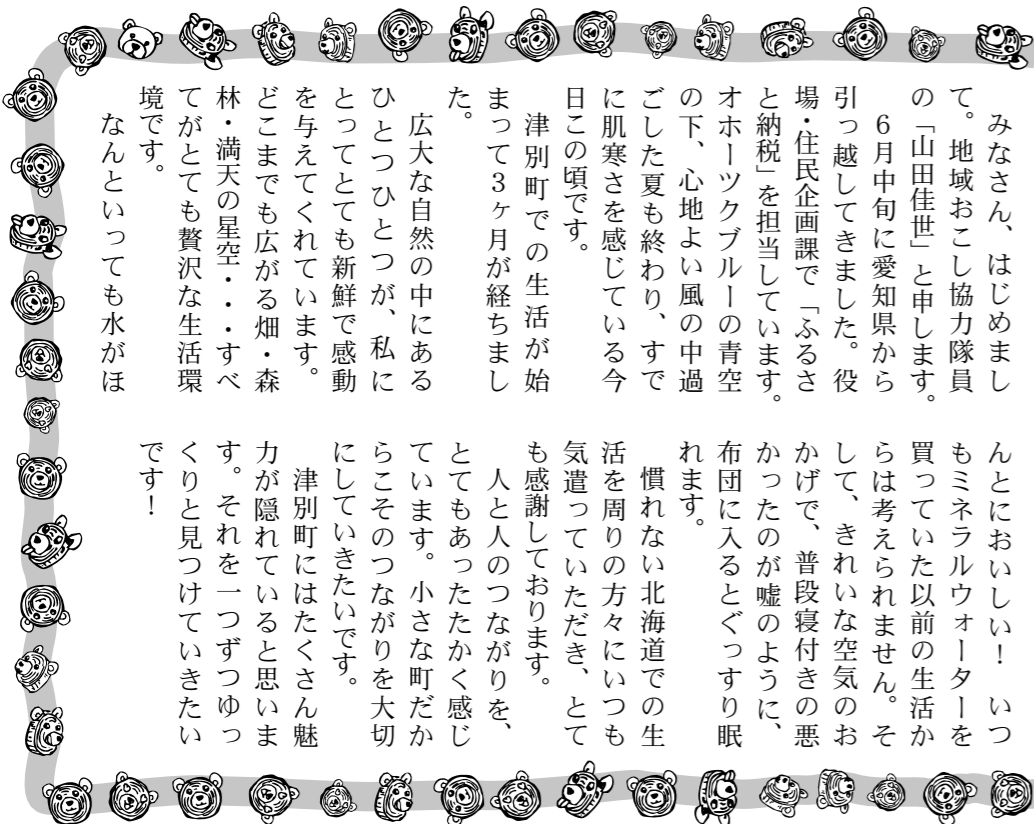 みなさん、はじめまし
て。地域おこし協力隊員
の「山田佳世」と申します。
６月中旬に愛知県から
引っ越してきました。役
場・住民企画課で「ふるさ
と納税」を担当しています。
オホーツクブルーの青空
の下、心地よい風の中過
ごした夏も終わり、すで
に肌寒さを感じている今
日この頃です。
津別町での生活が始
まって３ヶ月が経ちまし
た。
広大な自然の中にある
ひとつひとつが、私に
とってとても新鮮で感動
を与えてくれています。
どこまでも広がる畑・森
林・満天の星空・・・すべ
てがとても贅沢な生活環
境です。
なんといっても水がほ
んとにおいしい！　いつ
もミネラルウォーターを
買っていた以前の生活か
らは考えられません。そ
して、きれいな空気のお
かげで、普段寝付きの悪
かったのが嘘のように、
布団に入るとぐっすり眠
れます。
慣れない北海道での生
活を周りの方々にいつも
気遣っていただき、とて
も感謝しております。
人と人のつながりを、
とてもあったたかく感じ
ています。小さな町だか
らこそのつながりを大切
にしていきたいです。
津別町にはたくさん魅
力が隠れていると思いま
す。それを一つずつゆっ
くりと見つけていきたい
です！